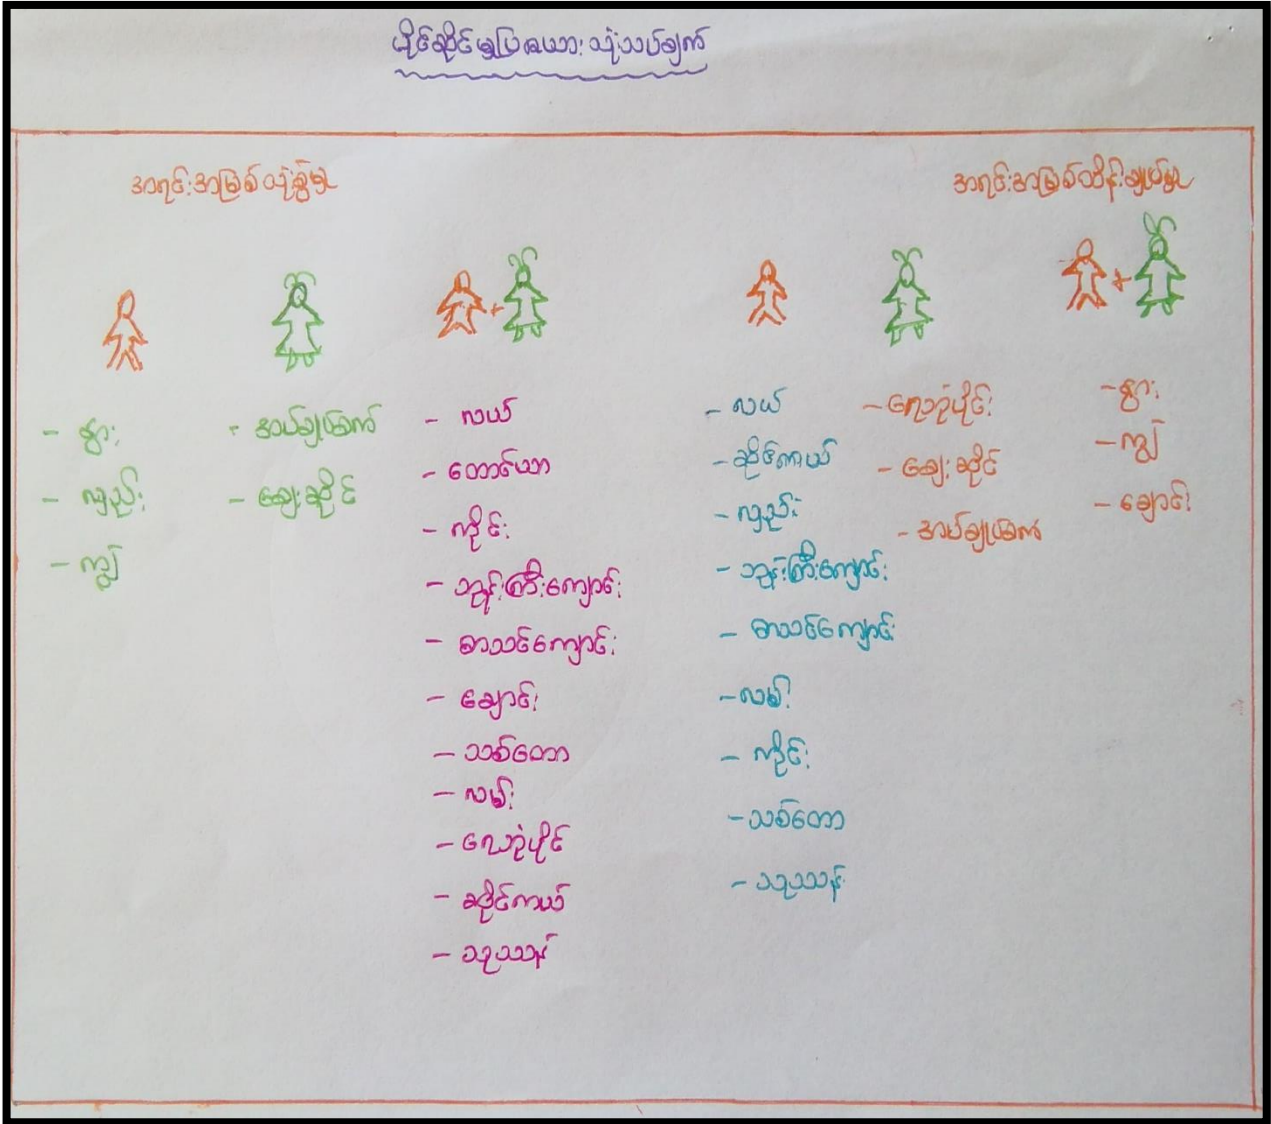 ပိုင်ဆိုင်မှုပြဇယား သုံးသပ်ချက်
အရင်းအမြစ်သုံးစွဲမှု
အရင်းအမြစ်ထိန်းချုပ်မှု
- နွား
- လှည်း
- ကျွဲ
- အပ်ချုပ်စက်
- ဈေးဆိုင်
- လယ်
- တောင်ယာ
- ကိုင်း
- ဘုန်းကြီးကျောင်း
- စာသင်ကျောင်း
- ချောင်း
- သစ်တော
- လမ်း
- ရေဘုံပိုင်
- ဆိုင်ကယ်
- သုဿန်
- လယ်
- ဆိုင်ကယ်
- လှည်း
- ဘုန်းကြီးကျောင်း
- စာသင်ကျောင်း
- လမ်း
- ကိုင်း
- သစ်တော
- သုဿန်
- ရေဘုံပိုင်
- ဈေးဆိုင်
- အပ်ချုပ်စက်
- နွား
- ကျွဲ
- ချောင်း